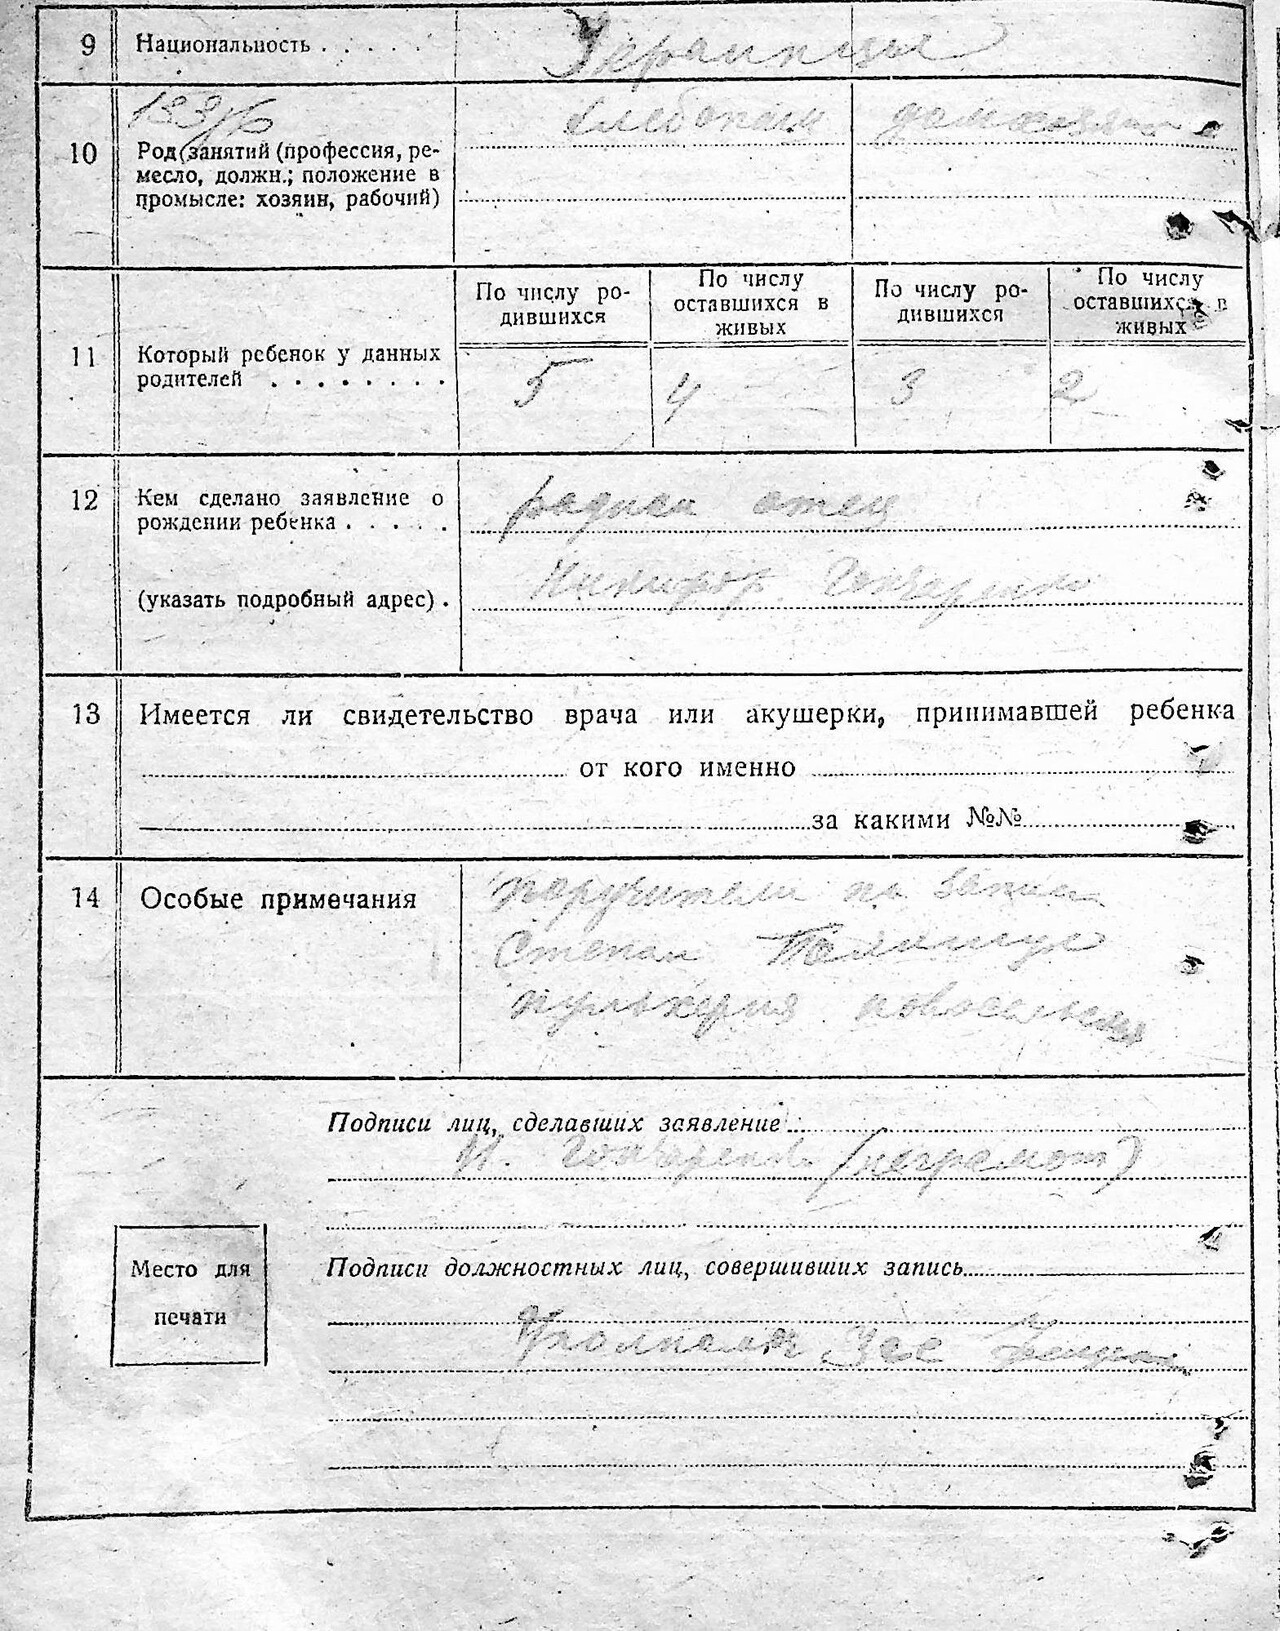 9 Национальность . . . . . Украинцы
10 Род занятий (профессия, ре-
месло, должн.; положение в
промысле: хозяин, рабочий)
хлебопаш домохозяйка
11 Который ребенок у данных
родителей . . . . . . . .
По числу ро-
дившихся
По числу
оставшихся в
живых
По числу ро-
дившихся
По числу
оставшихся в
живых
5 4 3 2
12 Кем сделано заявление о
рождении ребенка . . . . .
родной отец
(указать подробный адрес) .
Никифор Гончаренко
13 Имеется ли свидетельство врача или акушерки, принимавшей ребенка
от кого именно
за какими №№
14 Особые примечания
поручители по записи
Степан
пульхерия новосельская
Подписи лиц, сделавших заявление
Н. Гончаренко (неграмот)
Место для
печати
Подписи должностных лиц, совершивших запись